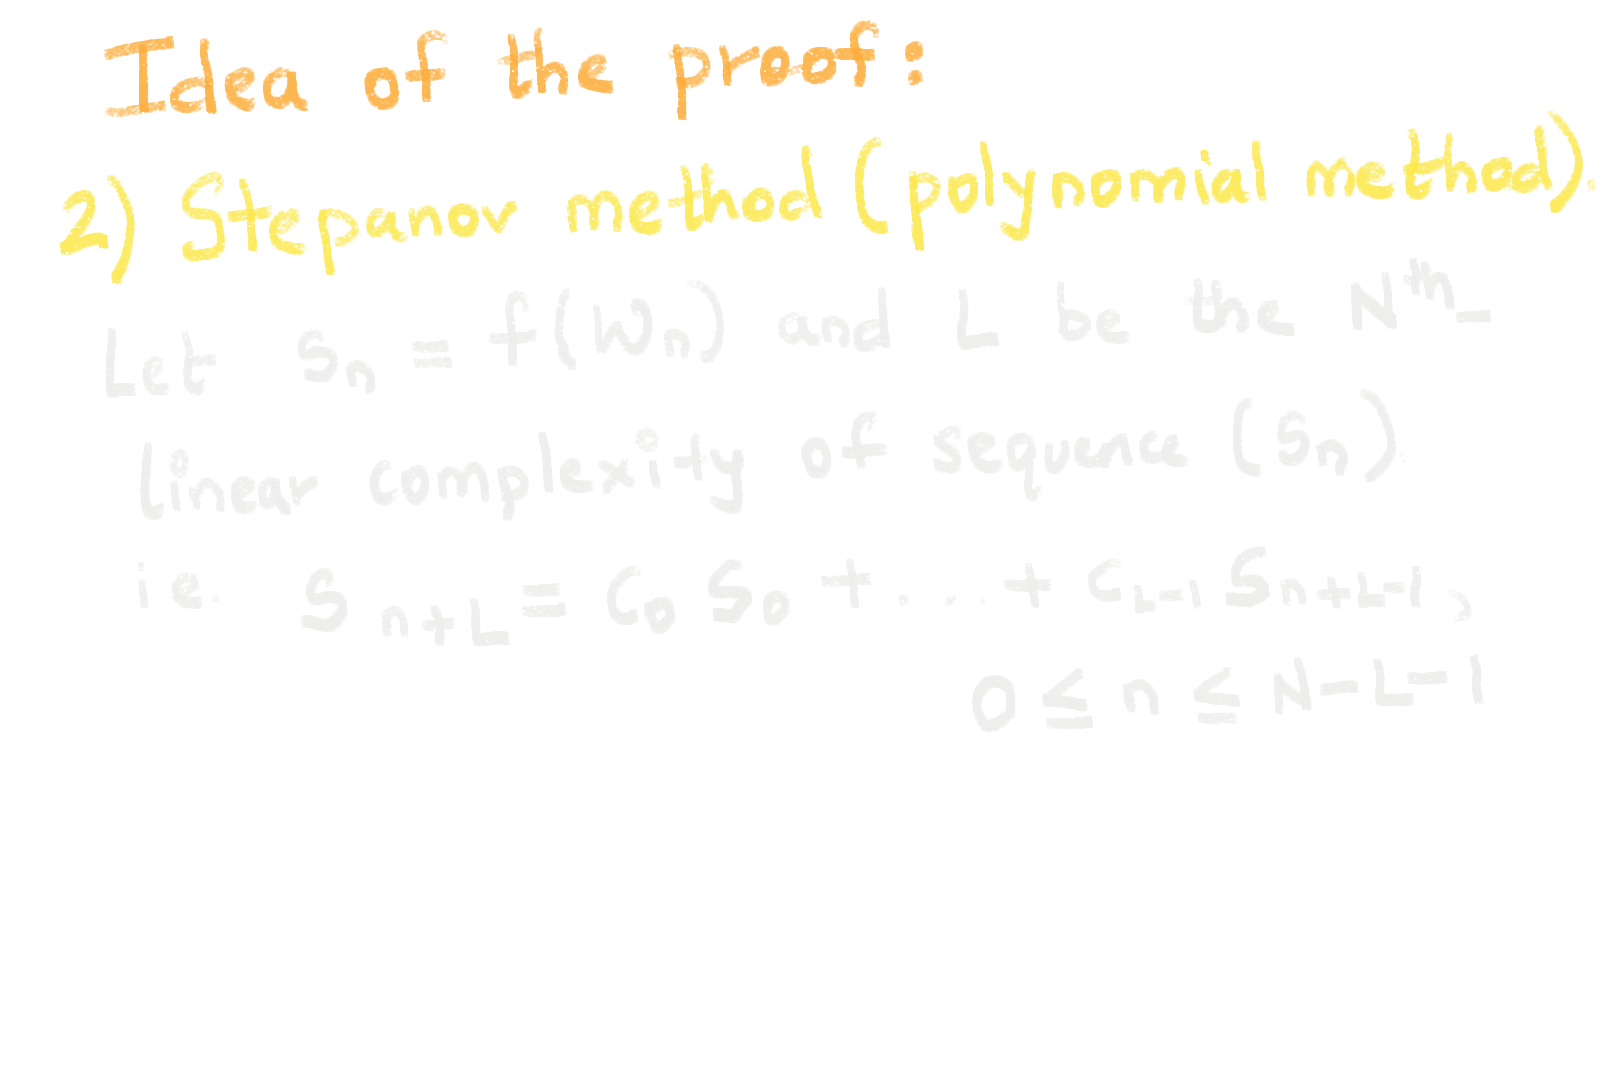 Idea of the proof:
2) Stepanov method (polynomial method).
Let Sₙ = f(Wₙ) and L be the Nᵗʰ-
linear complexity of sequence (Sₙ)
i.e. Sₙ₊L = C₀ S₀ + ... + C_{L-1} S_{n+L-1},
0 ≤ n ≤ N-L-1